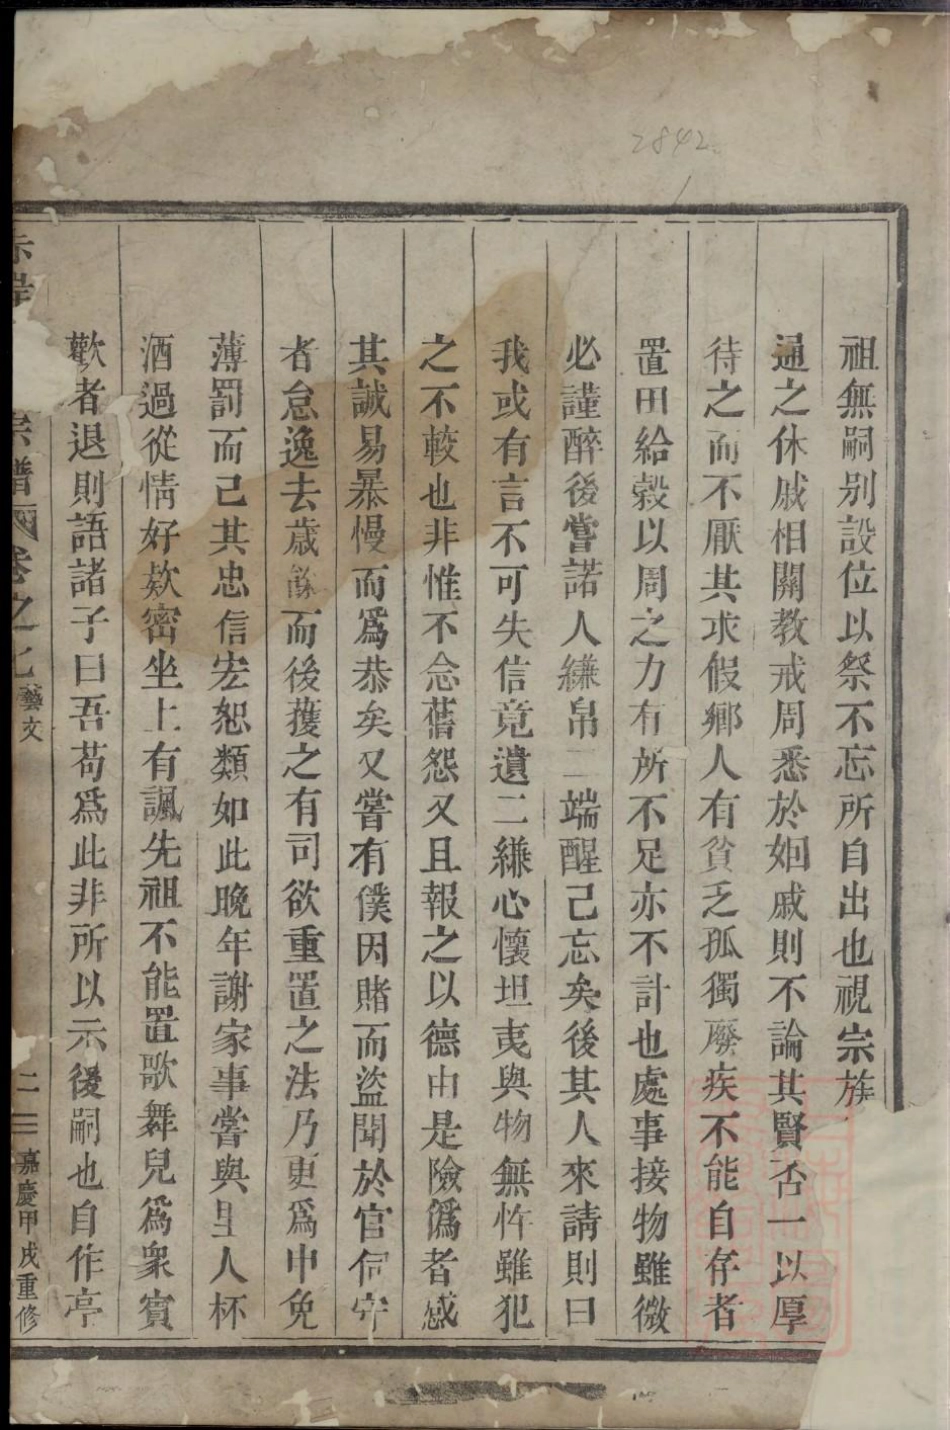 2842
祖無嗣别設位以祭不忘所自出也視宗族
通之休戚相關教戒周悉於姻戚則不論其賢否一以厚
待之而不厭其求假鄉人有貧乏孤獨廢疾不能自存者
置田給穀以周之力有所不足亦不計也處事接物雖微
必謹醉後嘗諾人縑帛二端醒己忘矣後其人來請則曰
我或有言不可失信竟遺二縑心懷坦夷與物無忤雖犯
之不較也非惟不念舊怨又且報之以德由是險僞者感
其誠易暴慢而爲恭矣又嘗有僕因賭而盜聞於官伺守
者怠逸去歲餘而後獲之有司欲重置之法乃更爲申免
薄罰而己其忠信宏恕類如此晚年謝家事嘗與里人杯
酒過從情好欵密坐上有諷先祖不能置歌舞兒爲衆賓
歡者退則語諸子曰吾苟爲此非所以示後嗣也自作亭
赤岸 宗譜 卷之七 藝文 二 嘉慶甲戌重修